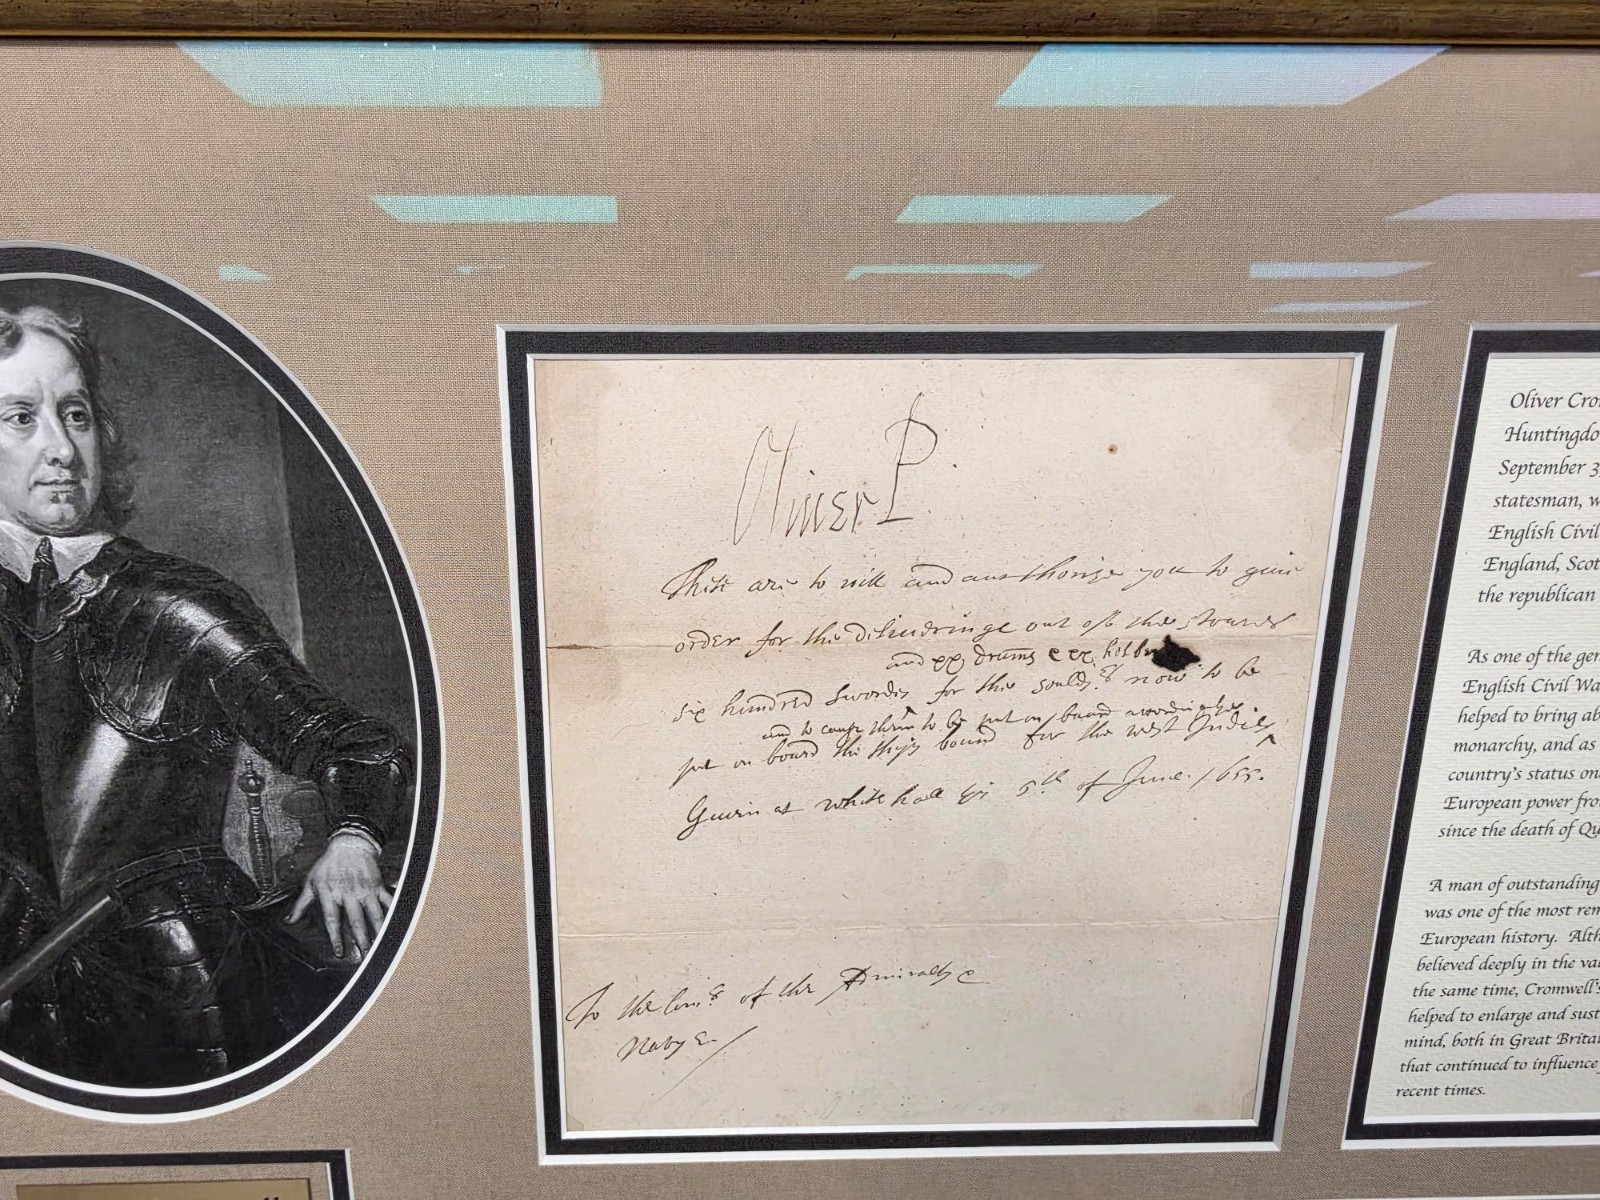 Oliver P.
These are to will and authorize you to give
order for the deliueringe out of the stoares
and xx drums & xx holb
six hundred swordes for the sould.rs now to be
and to cause them to be put on board accordingly
put on board the shipps bound for the west Indies
Given at white hall this 5th of June. 1655.
To the Com.rs of the Admiralty &
Navy &./
Oliver Cro
Huntingdo
September 3
statesman, w
English Civil
England, Scot
the republican
As one of the gen
English Civil Wa
helped to bring ab
monarchy, and as
country's status on
European power fro
since the death of Qu
A man of outstanding
was one of the most rem
European history. Alth
believed deeply in the va
the same time, Cromwell's
helped to enlarge and sust
mind, both in Great Brita
that continued to influence
recent times.